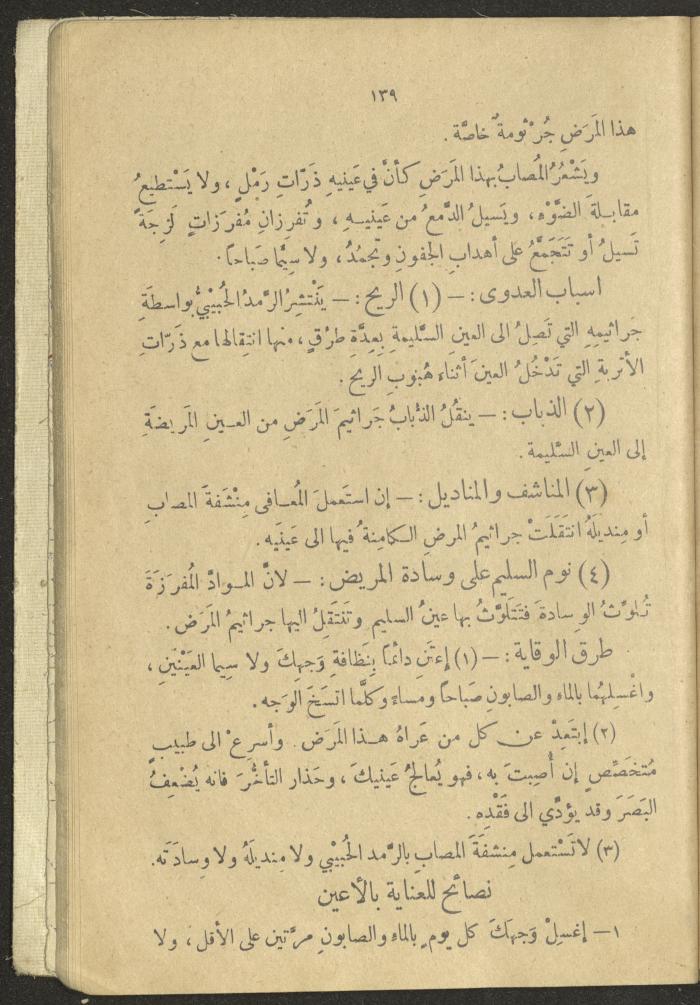 ١٣٩
هذا المَرَضِ جُرْثومةٌ خاصَّة .
ويَشْعُرُ المُصابُ بهذا المَرَضِ كأنَّ في عَينيهِ ذَرَّاتِ رَمْلٍ ، ولا يَسْتطيعُ
مقابلةَ الضَّوْءِ ، ويَسيلُ الدَّمعُ من عَينيهِ ، وتُفرِزانِ مُفرَزاتٍ لَزِجَةً
تَسيلُ أو تَتَجَمَّعُ على أهدابِ الجفونِ وتجمُدُ ، ولا سِيَّما صَباحاً .
اسباب العدوى : — (١) الريح : — يَنْتشِرُ الرَّمدُ الحُبَيْبيُّ بواسطَةِ
جَراثيمِهِ التي تَصِلُ الى العينِ السَّليمةِ بِعِدَّةِ طرُقٍ ، منها انتِقالها مع ذَرَّاتِ
الأتْرِبةِ التي تَدْخُلُ العينَ أثناءَ هُبوبِ الريح .
(٢) الذباب : — ينقُلُ الذُّبابُ جَراثيمَ المَرَضِ من العينِ المَريضَةِ
إلى العينِ السَّليمة .
(٣) المناشف والمناديل : — إن استَعملَ المُعافى مِنْشَفةَ المصابِ
أو مِنديلَهُ انتَقَلَتْ جراثيمُ المرضِ الكامِنةُ فيها الى عَينَيه .
(٤) نوم السليم على وسادة المريض : — لانَّ الموادَّ المُفرَزَةَ
تُلوِّثُ الوِسادةَ فتَتَلوَّثُ بها عينُ السليمِ وتَنتَقِلُ اليها جراثيمُ المَرَض .
طرق الوقاية : — (١) إعتَنِ دائماً بِنَظافةِ وَجهِكَ ولا سيما العَيْنَينِ ،
واغْسِلهُما بالماءِ والصابونِ صَباحاً ومساءً وكلَّما اتسَخَ الوَجه .
(٢) إبتَعِدْ عن كلِ من عَراهُ هذا المَرَض . وأسرِعْ الى طبيبٍ
مُتخَصِّصٍ إن أُصِبتَ به ، فهو يُعالجُ عَينيكَ ، وحَذارِ التأخُّرَ فانه يُضْعِفُ
البَصَرَ وقد يؤدِّي الى فَقْدِه .
(٣) لا تَسْتعمل مِنشفَةَ المصابِ بالرَّمد الحُبَيْبي ولا مِنديلَهُ ولا وِسادَتَه .
نصائح للعناية بالأعين
١ — إغسِلْ وَجهَكَ كل يومٍ بالماءِ والصابونِ مرَّتين على الأقل ، ولا